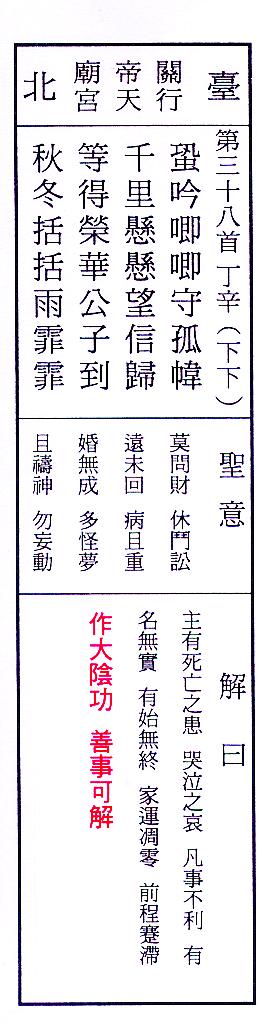 臺
關行
帝天
廟宮
北
第三十八首 丁辛（下下）
蛩吟唧唧守孤幃
千里懸懸望信歸
等得榮華公子到
秋冬括括雨霏霏
聖意
莫問財 休鬥訟
遠未回 病且重
婚無成 多怪夢
且禱神 勿妄動
解曰
主有死亡之患 哭泣之哀 凡事不利 有
名無實 有始無終 家運凋零 前程蹇滯
作大陰功 善事可解